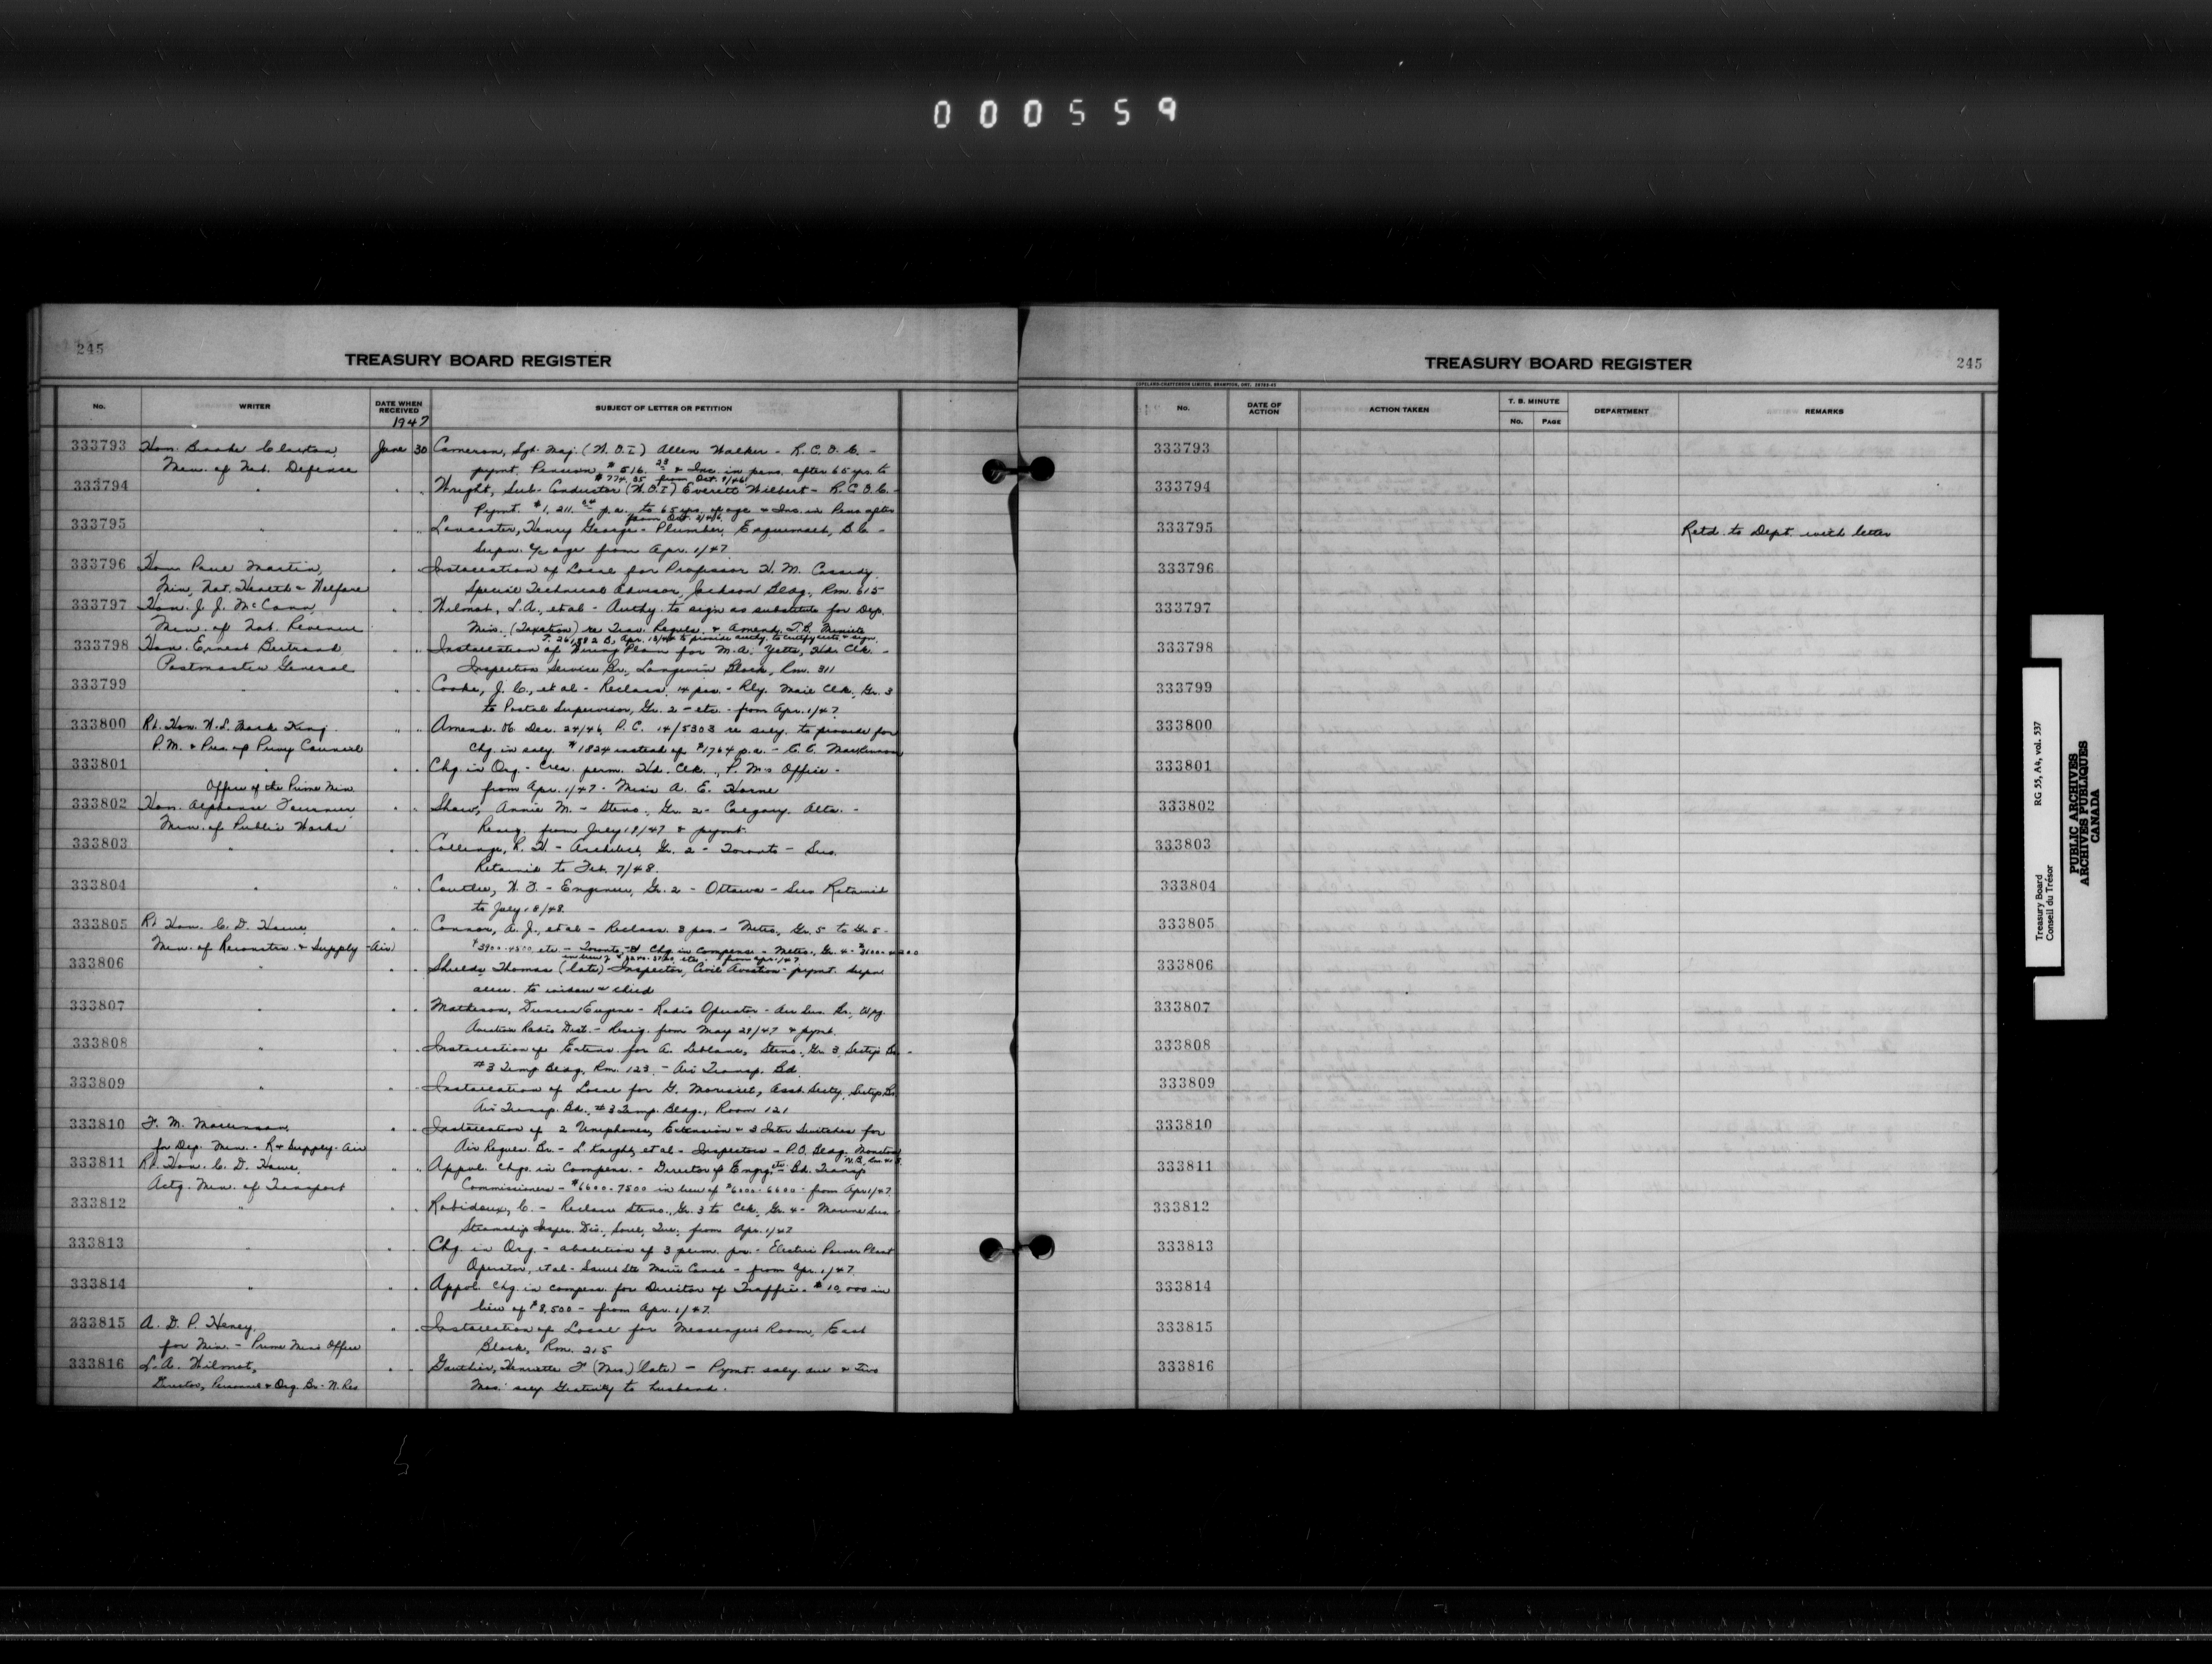 000559
245
TREASURY BOARD REGISTER
No.
WRITER
DATE WHEN RECEIVED
SUBJECT OF LETTER OR PETITION
1947
333793 Hon. Brooke Claxton, June 30 Cameron, Sgt. Maj. (W.O.I) Allen Walker - R.C.O.C. -
Min. of Nat. Defence pymt. Pension $516.23 & Inc. in pens. after 65 yrs. to
$774.35 from Oct.
333794 " " " Wright, Sub-Conductor (W.O.I) Everett Wilbert - R.C.O.C. -
Pymt. $1,211. p.a. to 65 yrs. of age & Inc. in Pens after
from Oct.
333795 " " " Lancaster, Henry George - Plumber, Esquimalt, B.C. -
Supn. a/c age from Apr. 1/47
333796 Hon. Paul Martin, " " Installation of Local for Professor H. M. Cassidy,
Min. Nat. Health & Welfare Special Technical Advisor, Jackson Bldg., Rm. 615
333797 Hon. J. J. McCann, " " Wilmot, L.A., et al - Authy. to sign as substitute for Dep.
Min. of Nat. Revenue Min. (Taxation) re Trav. Regules. & Amend. T.B. Minute
to provide authy. to certify accts & sign.
333798 Hon. Ernest Bertrand, " " Installation of Wiring Plan for M.A. Yetts, Hd. Clk. -
Postmaster General Inspection Service Br., Langevin Block, Rm. 311
333799 " " " Cooke, J. C., et al - Reclass. 14 pos. - Rly. Mail Clk., Gr. 3
to Postal Supervisor, Gr. 2 - etc. - from Apr. 1/47
333800 Rt. Hon. W. L. Mack. King, " " Amend. OC Dec. 24/46, P.C. 14/5303 re saly. to provide for
P.M. & Pres. of Privy Council Chg. in saly. $1824 instead of $1764 p.a. -
333801 " " " Chg. in Org. - Crea. perm. Hd. Clk., P.M's Office -
Office of the Prime Min. from Apr. 1/47 - Miss A. E. Horne
333802 Hon. Alphonse Fournier, " " Shaw, Annie M. - Steno., Gr. 2 - Calgary, Alta. -
Min. of Public Works Resig. from July 18/47 & pymt.
333803 " " " R. H. - Architect, Gr. 2 - Toronto - Svs.
Retained to Feb. 7/48.
333804 " " " Coutlee, - Engineer, Gr. 2 - Ottawa - Svs. Retained
to July 18/48.
333805 Rt. Hon. C. D. Howe, " " Connor, A. J., et al - Reclass. 3 pos. - Metro., Gr. 5 to Gr. 5 -
Min. of Reconstn. & Supply - Air $3900-4500 etc - Toronto, - & Chg. in Compens. - Metro., Gr. 4 - $3600-4200
in lieu of etc. - from Apr. 1/47
333806 " " " Shields, Thomas (late) Inspector, Civil Aviation - pymt. Supn
allce. to widow & child
333807 " " " Matheson, Duncan Eugene - Radio Operator - Air Svs. Br., Wpg.
Aviation Radio Dist. - Resig. from May 28/47 & pymt.
333808 " " " Installation of Extens. for A. Leblanc, Steno., Gr. 3, Sectys Br. -
#3 Temp. Bldg., Rm. 123 - Air Transp. Bd.
333809 " " " Installation of Local for G. Morisset, Asst. Secty., Sectys Br.
Air Transp. Bd., #3 Temp. Bldg., Room 121
333810 F. M. " " Installation of 2 Uniphones, Extension & 3 Inter Switches for
for Dep. Min. - R & Supply - Air Air Regules. Br. - L. Knight, et al - Inspectors - P.O. Bldg. Moncton
N.B.
333811 Rt. Hon. C. D. Howe, " " Appvl. Chgs. in Compens. - Director of Engrg. etc. Bd. Transp.
Actg. Min. of Transport Commissioners - $6600-7500 in lieu of $6000-6600 - from Apr. 1/47
333812 " " " Robidoux, C. - Reclass. Steno., Gr. 3 to Clk., Gr. 4 - Marine Svs.
Steamship Inspec. Div., Sorel, Que., from Apr. 1/47
333813 " " " Chg. in Org. - abolition of 3 perm. pos. - Electric Power Plant
Operator, et al - Sault Ste. Marie Canal - from Apr. 1/47
333814 " " " Appvl. Chg. in compens. for Director of Traffic - $10,000 in
lieu of $8,500 - from Apr. 1/47
333815 A. D. P. Heeney, " " Installation of Local for Messengers Room, East
for Min. - Prime Mins Office Block, Rm. 215
333816 L. A. Wilmot, " " Gauthier, Henriette F. (Mrs.) (late) - Pymt. saly. due & Two
Director, Personnel & Org. Br. - N. Rev Mos. saly. Gratuity to husband.
TREASURY BOARD REGISTER
245
COPELAND-CHATTERSON LIMITED, BRAMPTON, ONT.
No.
DATE OF ACTION
ACTION TAKEN
T. B. MINUTE
No.
PAGE
DEPARTMENT
REMARKS
333793
333794
333795 Retd. to Dept. with letter
333796
333797
333798
333799
333800
333801
333802
333803
333804
333805
333806
333807
333808
333809
333810
333811
333812
333813
333814
333815
333816
Treasury Board RG 55, A4, vol. 537
Conseil du Trésor
PUBLIC ARCHIVES
ARCHIVES PUBLIQUES
CANADA